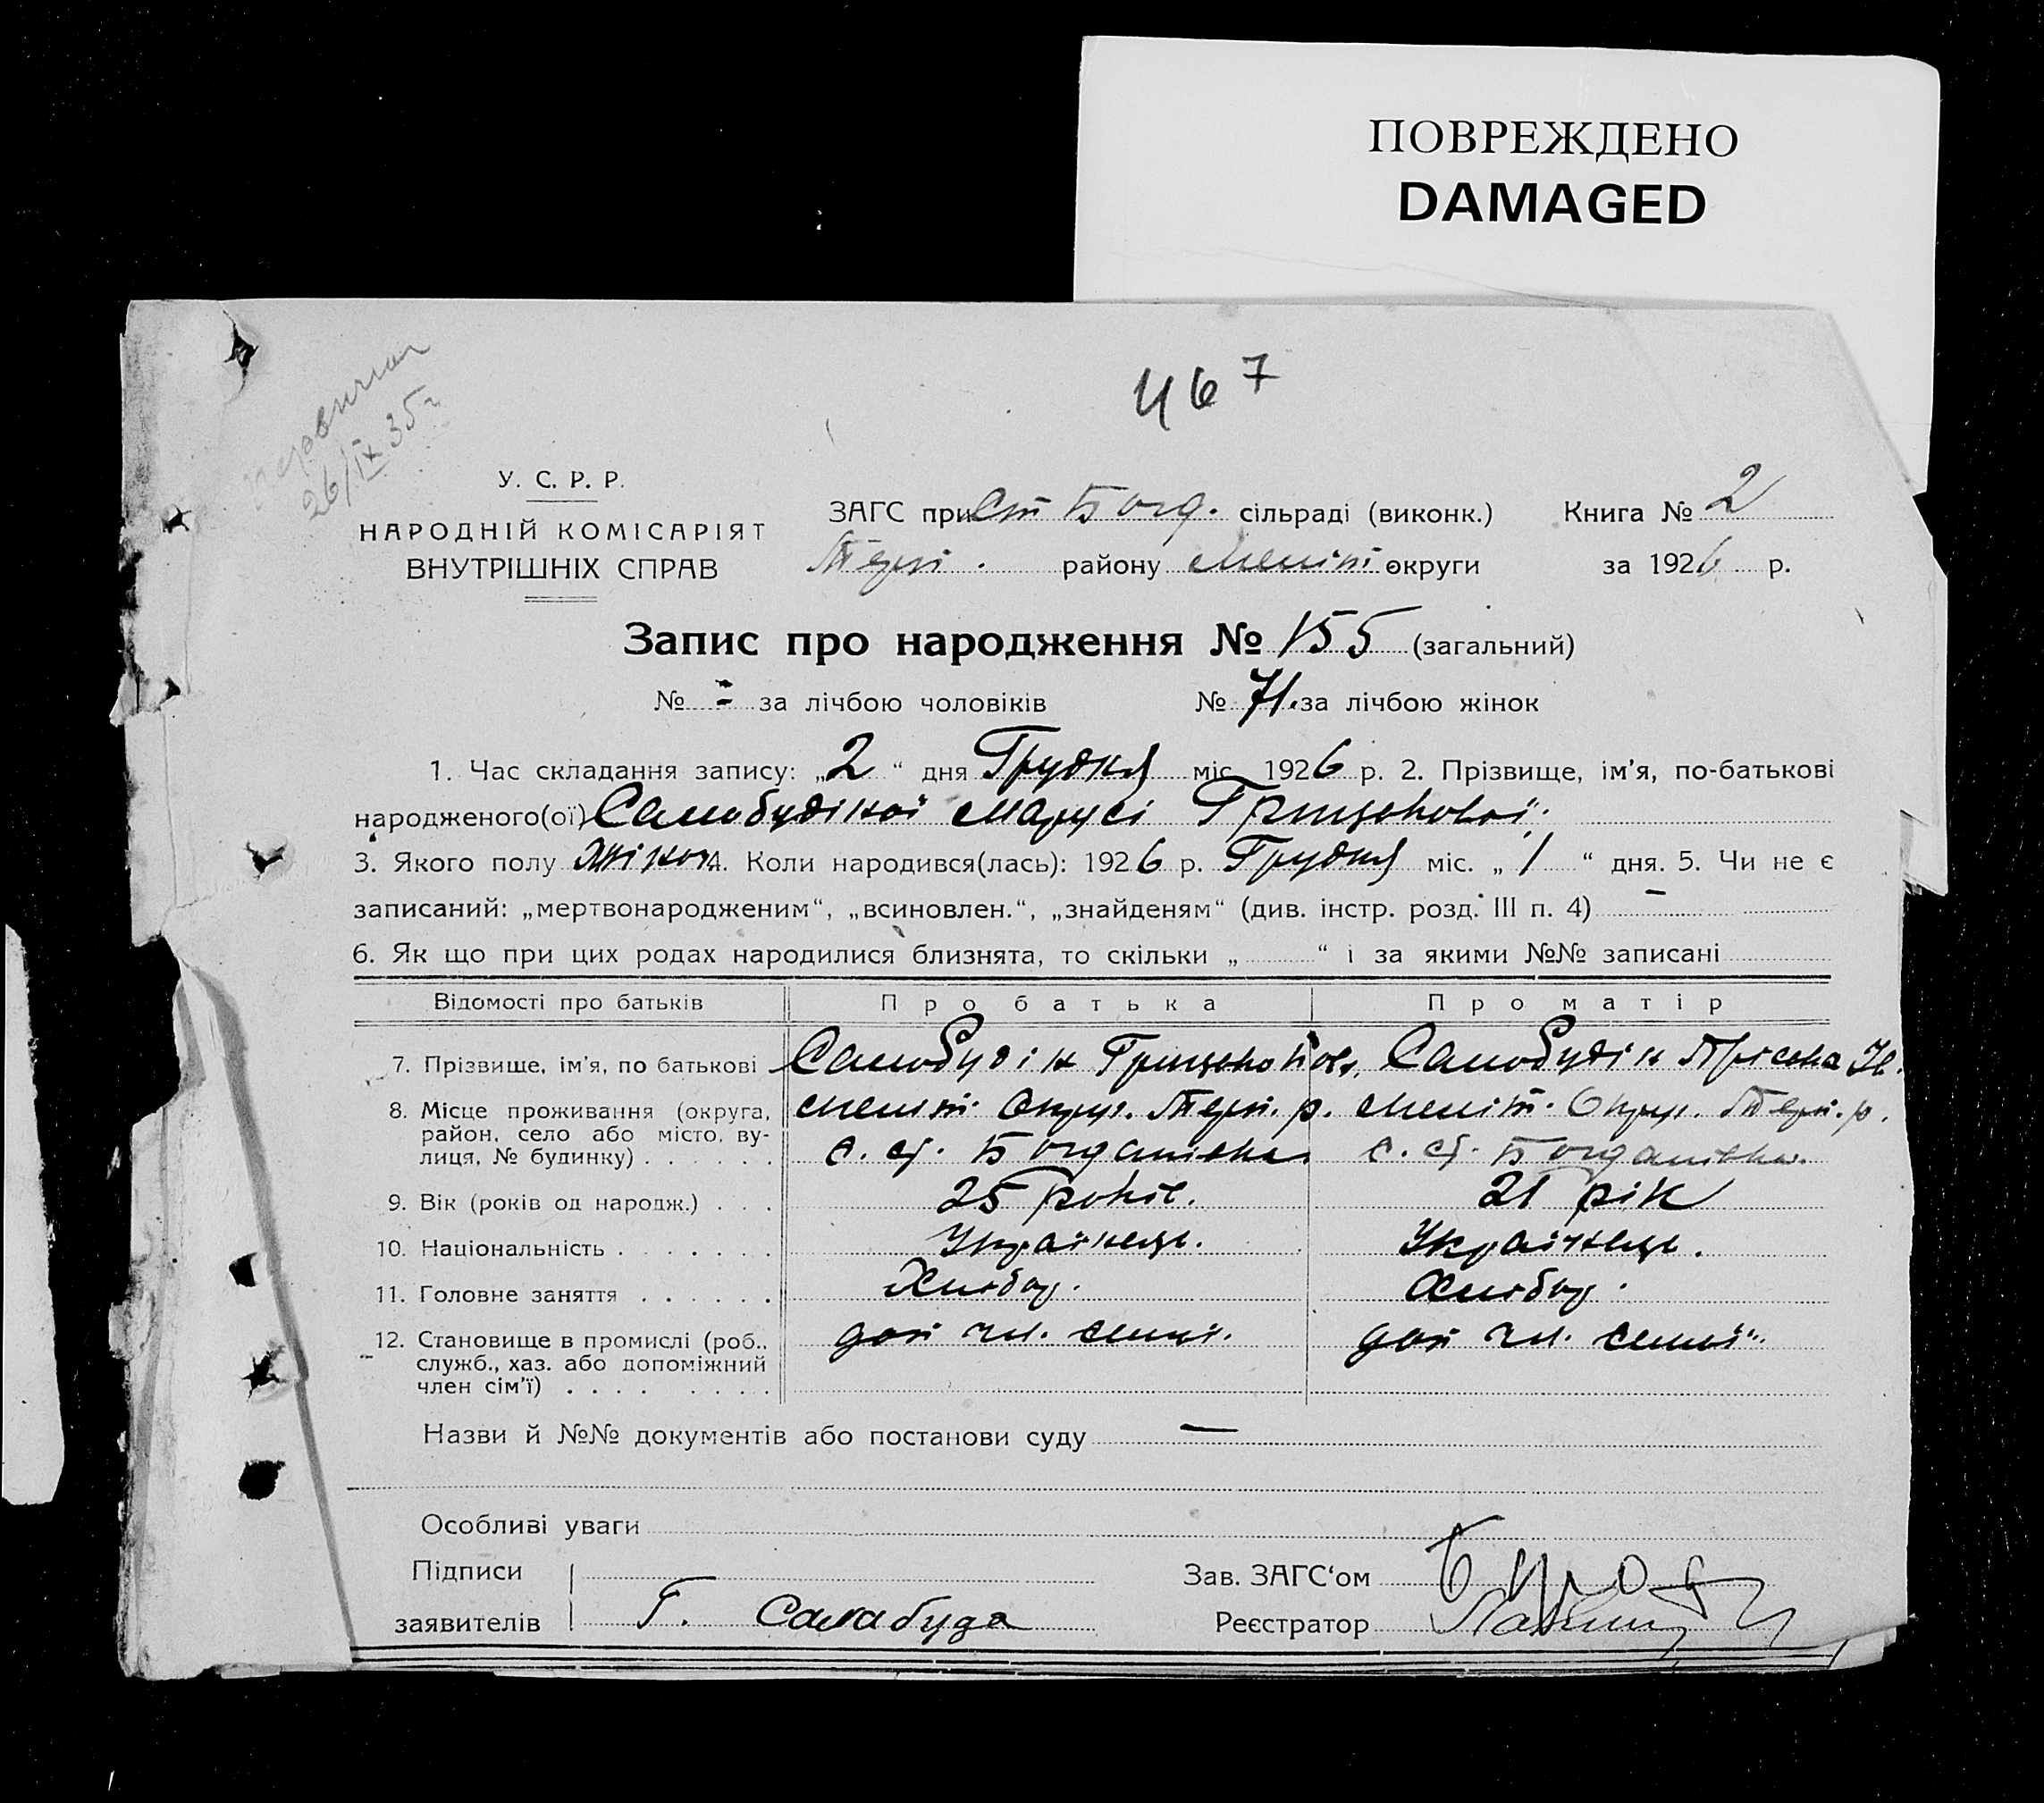 ПОВРЕЖДЕНО
DAMAGED
467
26/IX 35 г
У. С. Р. Р.
НАРОДНІЙ КОМІСАРІЯТ
ВНУТРІШНІХ СПРАВ
ЗАГС при Ст Богд. сільраді (виконк.) Книга № 2
району Меліт. округи за 1926 р.
Запис про народження № 155 (загальний)
№ - за лічбою чоловіків № 71. за лічбою жінок
1. Час складання запису: „2“ дня Грудня міс. 1926 р. 2. Прізвище, ім'я, по-батькові
народженого(ої) Самобудікої Марусі Грицькової.
3. Якого полу жіноч. 4. Коли народився(лась): 1926 р. Грудня міс. „1“ дня. 5. Чи не є
записаний: „мертвонародженим“, „всиновлен.“, „знайденям“ (див. інстр. розд. III п. 4) —
6. Як що при цих родах народилися близнята, то скільки „ “ і за якими №№ записані
Відомості про батьків Про батька Про матір
7. Прізвище, ім'я, по батькові Самобудік Грицько Самобудік
8. Місце проживання (округа, район, село або місто, ву-лиця, № будинку) Меліт. Окру. р. Меліт. Окру. р.
с. ст. Богданівка с. ст. Богданівка.
9. Вік (років од народж.) 25 років. 21 рік
10. Національність Українець. Українець.
11. Головне заняття Хлібор. Хлібор.
12. Становище в промислі (роб., служб., хаз. або допоміжний член сім'ї) доп чл. семьї. доп чл. семьї.
Назви й №№ документів або постанови суду —
Особливі уваги
Підписи Зав. ЗАГС'ом
заявителів Г. Самабуда Реєстратор